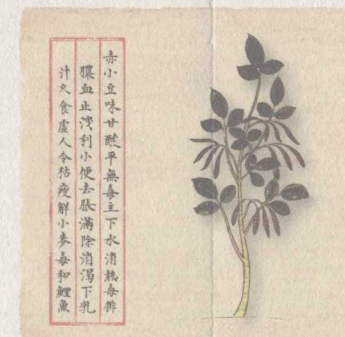 赤小豆味甘酸平無毒主下水消熱毒排
膿血止洩利小便去脹滿除消渴下乳
汁久食虛人令枯瘦解小麥毒和鯉魚